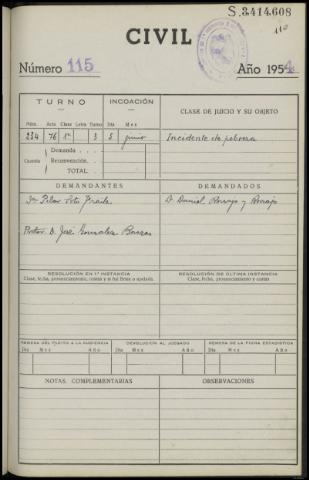 S.3414.608
110
CIVIL
Número 115 Año 1954
TURNO INCOACIÓN CLASE DE JUICIO Y SU OBJETO
Núm. Clase Letra Turno Día Mes
234 76 1ª 3 5 junio Incidente de pobreza
Demanda
Cuantía Reconvención.
TOTAL.
DEMANDANTES DEMANDADOS
Dª Pilar Soto D. Daniel Arroyo y Arroyo
D. José Gonzalez
RESOLUCIÓN EN 1ª INSTANCIA RESOLUCIÓN DE ÚLTIMA INSTANCIA
Clase, fecha, pronunciamiento, costas y si fué firme o apelada Clase, fecha, pronunciamiento y costas
REMESA DEL PLEITO A LA AUDIENCIA DEVOLUCIÓN AL JUZGADO REMESA DE LA FICHA ESTADÍSTICA
Día Mes Año Día Mes Año Día Mes Año
NOTAS COMPLEMENTARIAS OBSERVACIONES